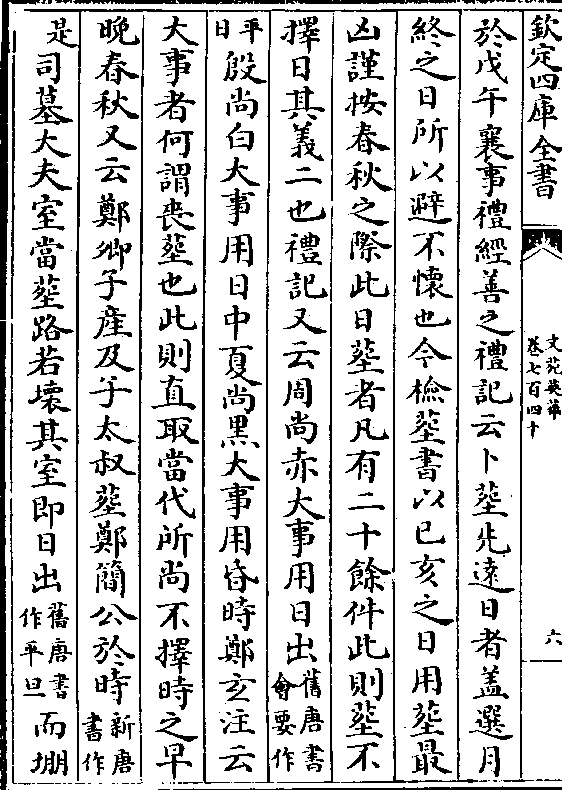 欽定四庫全書
文苑英華
卷七百四十
六
於戊午襄事禮經善之禮記云卜塟先逺日者盖選月
終之日所以避不懐也今檢塟書以已亥之日用塟最
凶謹按春秋之際此日塟者凡有二十餘件此則塟不
擇日其義二也禮記又云周尚赤大事用日出舊唐書會要作
平日殷尚白大事用日中夏尚黒大事用昏時鄭玄注云
大事者何謂喪塟也此則直取當代所尚不擇時之早
晩春秋又云鄭卿子産及子太叔塟鄭簡公於時新唐書作
是司墓大夫室當塟路若壊其室即日出舊唐書作平旦而堋